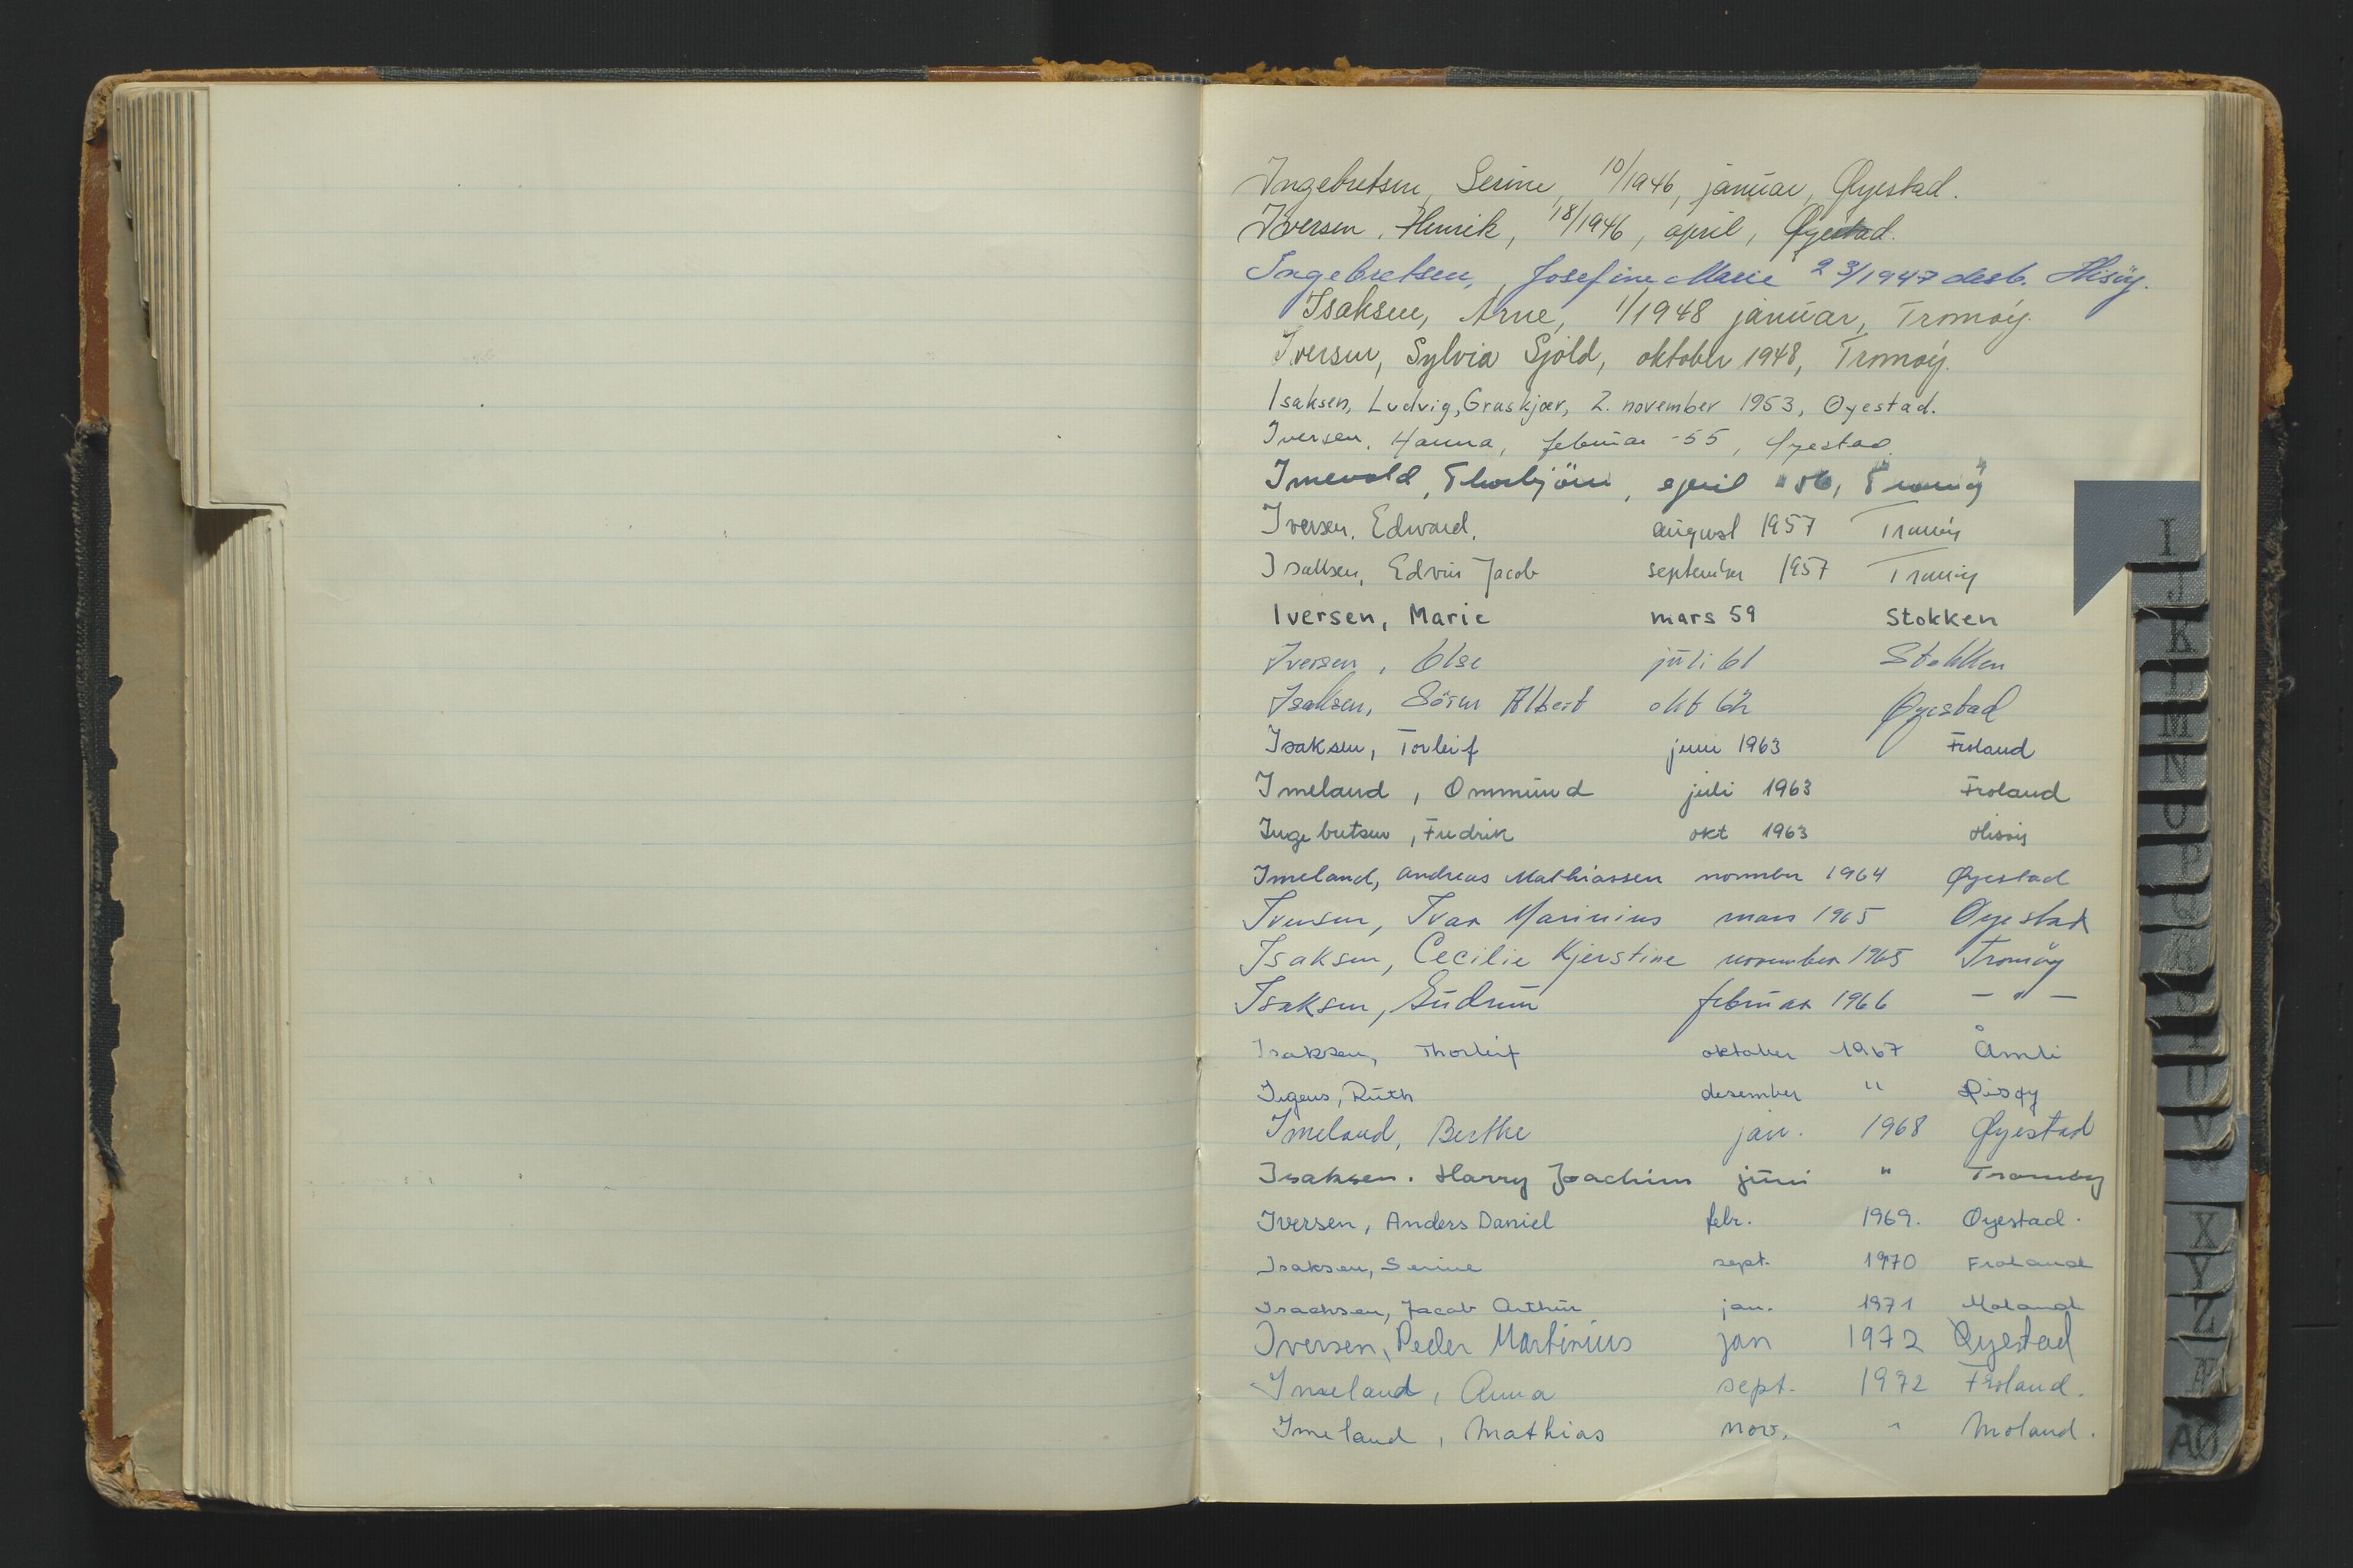 Ingebretsen, Serine, 10/1946, januar, Øyestad.
Iversen, Henrik, 18/1946, april, Øyestad.
Ingebretsen, Josefine Marie 23/1947 desb. Hisöy.
Isaksen, Arne, 1/1948 januar, Tromøy.
Iversen, Sylvia Sjöld, oktober 1948, Tromöy.
Isaksen, Ludvig, Graskjær, 2. november 1953, Øyestad.
Iversen, Hanna, februar -55, Øyestad.
Imevold, Thorbjörn, april "56, Tromöy
Iversen, Edvard, august 1957 Tromöy
Isaksen, Edvin Jacob september 1957 Tromöy
Iversen, Marie mars 59 Stokken
Iversen, Else juli 61 Stokken
Isaksen, Sören Albert okt 62 Øyestad
Isaksen, Torleif juni 1963 Froland
Imeland, Ommund juli 1963 Froland
Ingebretsen, Fredrik okt 1963 Hisöy
Imeland, Andreas Mathiassen november 1964 Øyestad
Iversen, Ivar Marinius mars 1965 Øyestad
Isaksen, Cecilie Kjerstine november 1965 Tromöy
Isaksen, Gudrun februar 1966 — " —
Isaksen, Thorleif oktober 1967 Åmli
Igens, Ruth desember " Hisøy
Imeland, Berthe jan. 1968 Øyestad
Isaksen. Harry Joachim juni " Tromöy
Iversen, Anders Daniel febr. 1969. Øyestad.
Isaksen, Serine sept. 1970 Froland
Isachsen, Jacob Arthur jan. 1971 Moland
Iversen, Peder Martinius jan 1972 Øyestad
Imeland, Anna sept. 1972 Froland.
Imeland, Mathias nov. " Moland.
I
J
K
L
M
N
O
P
Q
R
S
T
U
V
W
X
Y
Z
Æ
AØ